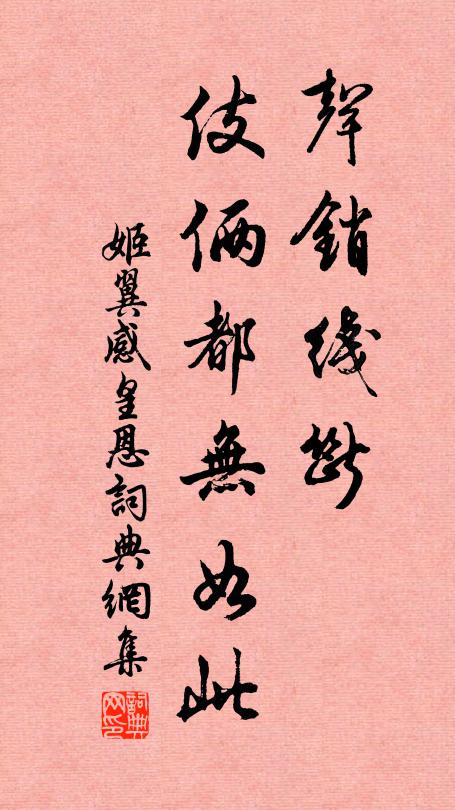 聲銷綫斷
伎倆都無如此
姬翼感皇恩詞典網集
詞典網印